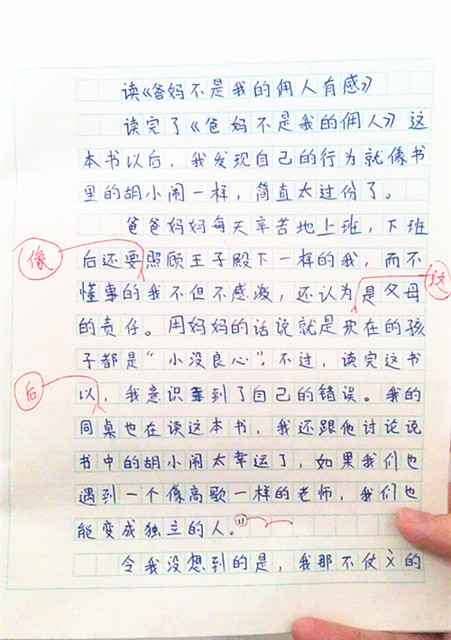 读《爸妈不是我的佣人有感》
读完了《爸妈不是我的佣人》这
本书以后，我发现自己的行为就像书
里的胡小闹一样，简直太过份了。
爸爸妈妈每天辛苦地上班，下班
像
后还要照顾王子殿下一样的我，而不
这
懂事的我不但不感激，还认为是父母
的责任。用妈妈的话说就是现在的孩
子都是“小没良心”。不过，读完这书
后
以，我意识到了自己的错误。我的
同桌也在读这本书，我还跟他讨论说
书中的胡小闹太幸运了，如果我们也
遇到一个像高歌一样的老师，我们也
能变成独立的人。
令我没想到的是，我那不仗义的